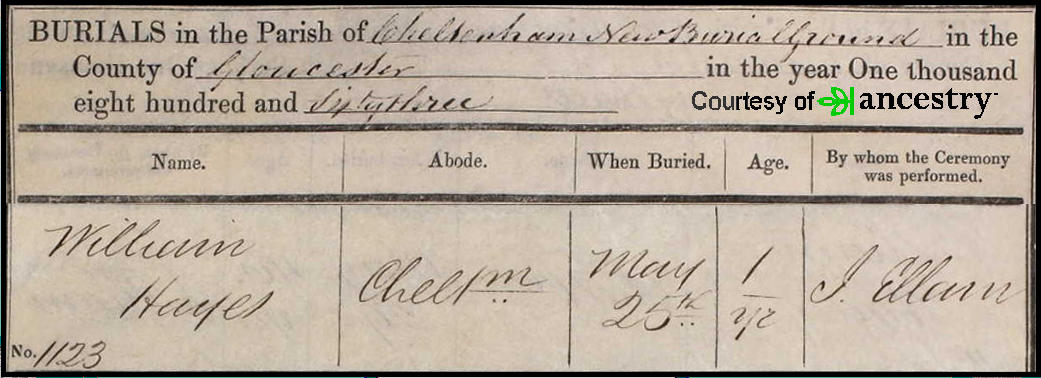 BURIALS in the Parish of Cheltenham New Burial Ground in the
County of Gloucester in the year One thousand
eight hundred and Sixty three
Courtesy of ancestry
Name. Abode. When Buried. Age. By whom the Ceremony
was performed.
William
Hayes
Cheltm
May
25th
1
yr
J. Ellam
No. 1123